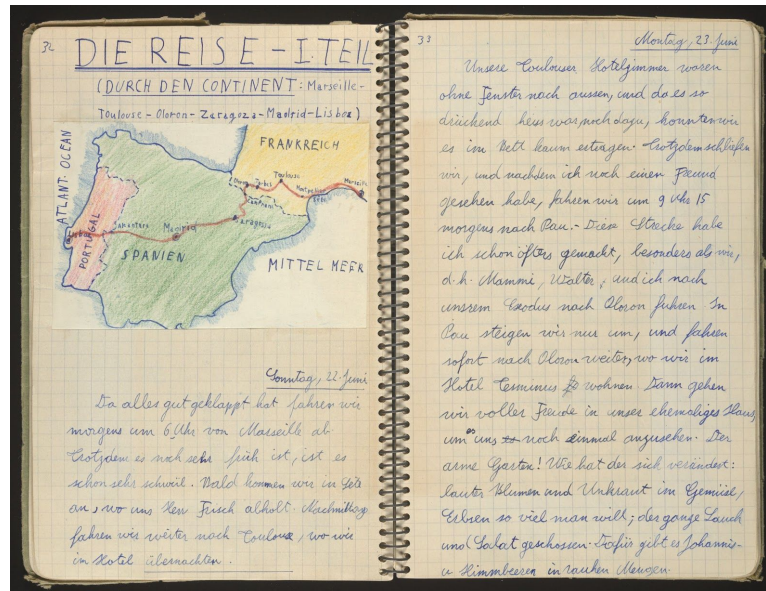 32
DIE REISE - I. TEIL
(DURCH DEN CONTINENT: Marseille-
Toulouse - Oloron - Zaragoza - Madrid - Lisboa)
ATLANT. OCEAN
FRANKREICH
Toulouse
Tarbes
Oloron
Marseille
Canfranc
Zaragoza
Madrid
PORTUGAL
SPANIEN
MITTELMEER
Sonntag, 22. Juni
Da alles gut geklappt hat fahren wir
morgens um 6 Uhr von Marseille ab
Trotzdem es noch sehr früh ist, ist es
schon sehr schwül. Bald kommen wir in Sète
an, wo uns Herr Frisch abholt. Nachmittags
fahren wir weiter nach Toulouse, wo wir
im Hotel übernachten.
33
Montag, 23. Juni
Unsere Toulouser Hotelzimmer waren
ohne Fenster nach aussen, und da es so
drückend heiss war, noch dazu, konnten wir
es im Bett kaum ertragen. Trotzdem schliefen
wir, und nachdem ich noch einen Freund
gesehen habe, fahren wir um 9 Uhr 15
morgens nach Pau. - Diese Strecke habe
ich schon öfters gemacht, besonders als wir,
d.h. Mammi, Walter, und ich nach
unsrem Exodus nach Oloron fuhren. In
Pau steigen wir nur um, und fahren
sofort nach Oloron weiter, wo wir im
Hotel Terminus wohnen. Dann gehen
wir voller Freude in unser ehemaliges Haus,
um es uns noch einmal anzusehen. Der
arme Garten! Wie hat der sich verändert:
lauter Blumen und Unkraut im Gemüse,
Erbsen so viel man will; der ganze Lauch
und Salat geschossen. Dafür gibt es Johannis-
u Himmbeeren in rauhen Mengen.